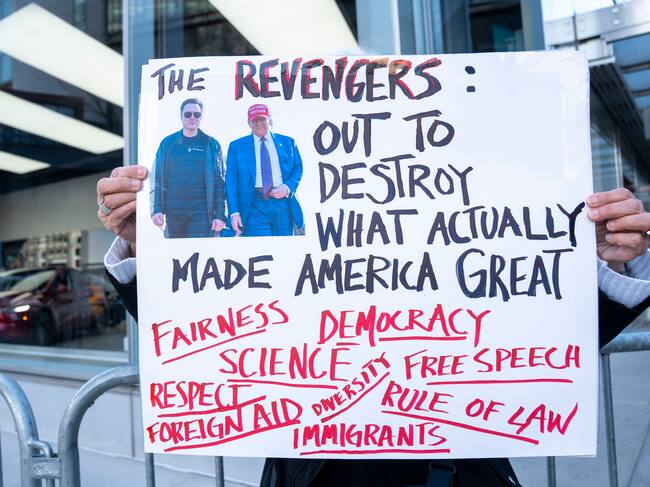 THE REVENGERS:
OUT TO
DESTROY
WHAT ACTUALLY
MADE AMERICA GREAT
FAIRNESS DEMOCRACY
SCIENCE FREE SPEECH
RESPECT DIVERSITY RULE OF LAW
FOREIGN AID
IMMIGRANTS